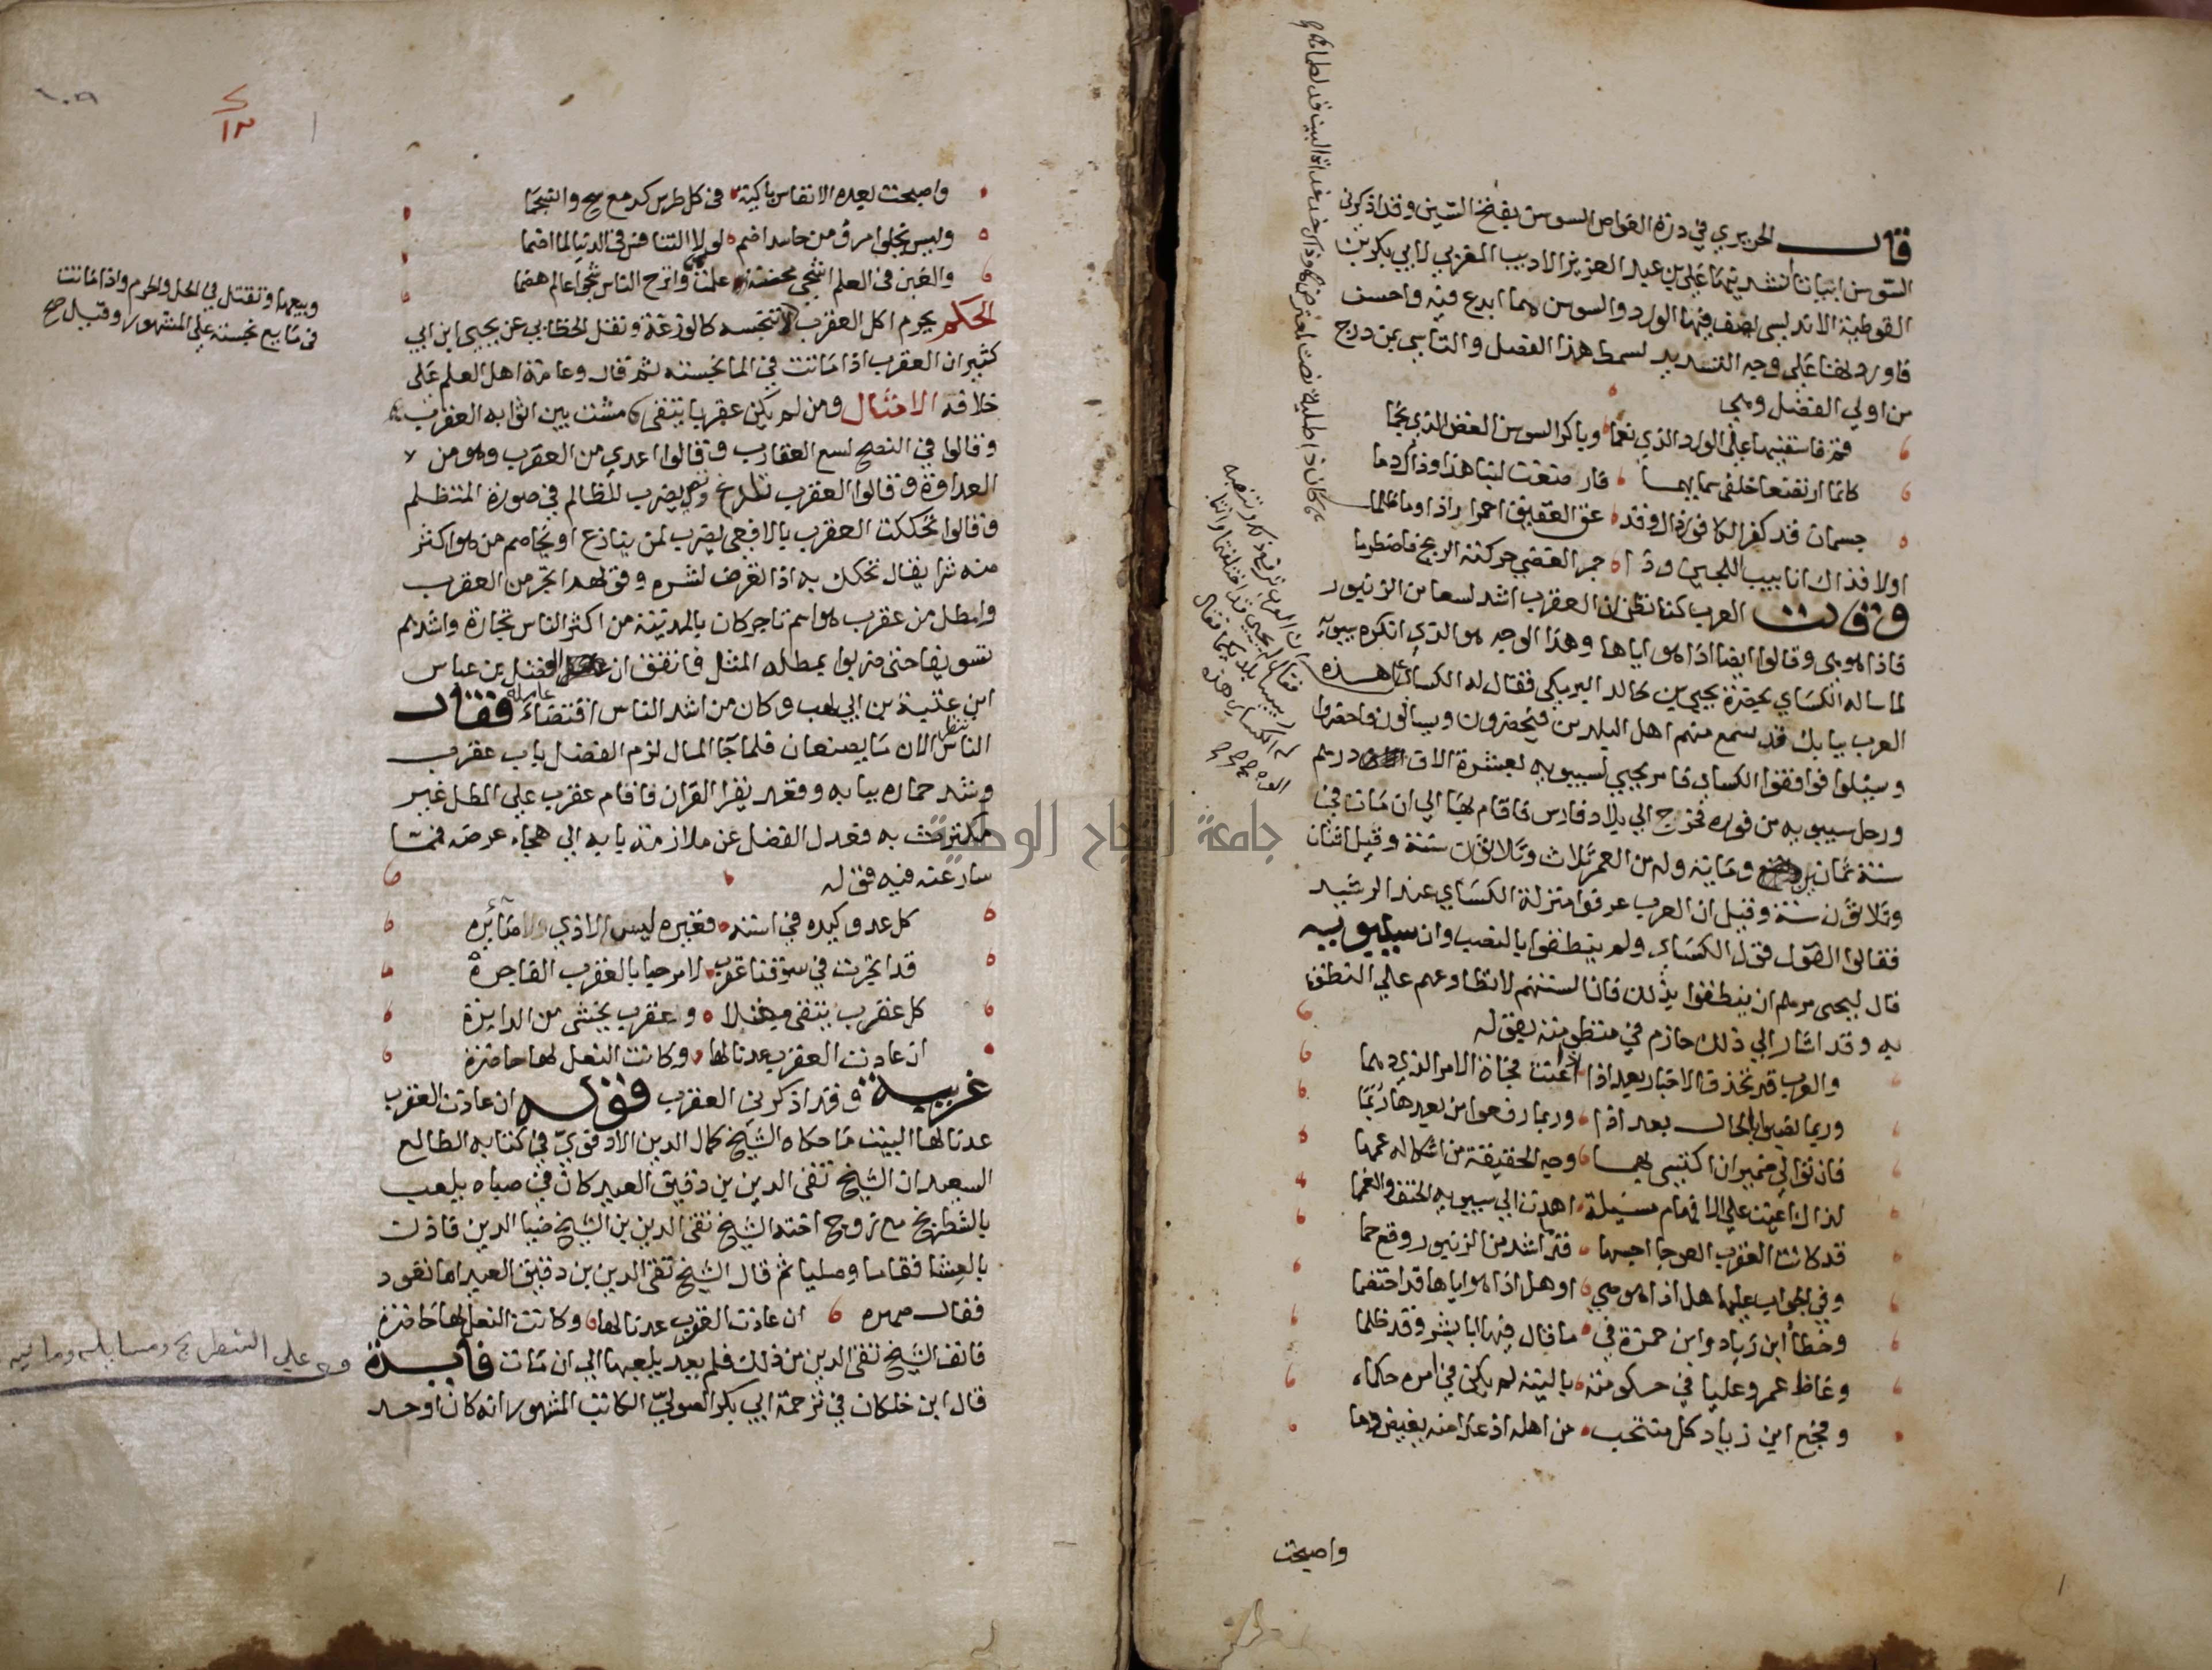 قال الحريري في درة الغواص السوسن بفتح السين وقد اذكرني
السوسن ابياتا انشدنيها علي بن عبد العزيز الاديب المغربي لابي بكر بن
القوطية الاندلسي يصف فيها الورد والسوسن مما ابدع فيه واحسن
فاوردها هنا علي وجه التسديد لسمط هذا الفصل والتاسي بمن درج
من اولي الفضل وهي
قم فاسقنيها علي الورد الذي نعما وباكر السوسن الغض الذي نجما
كانما ارتضعا خلفي سمايهما فارضعت لبنا هذا وذاك دما
جسمان قد كفر الكافور ذاك وقد عق العقيق احمرارا ذا وما ظلما
اولا فذاك انابيب اللجين وذا جمر الغضي حركته الريح فاضطرما
وقالت العرب كنا نظن ان العقرب اشد لسعا من الزنبور
فاذا هو هي وقالوا ايضا اذا هو اياها وهذا الوجه هو الذي انكره سيبويه
لما ساله الكساي بحضرة يحيي بن خالد البرمكي فقال له الكساي هذه
العرب ببابك قد سمع منهم اهل البلدين فيحضرون ويسالون فاحضروا
وسيلوا فوافقوا الكساي فامر يحيي لسيبويه بعشرة الاف درهم
ورحل سيبويه من فوره فخرج الي بلاد فارس فاقام بها الي ان مات في
سنة ثمانين وماية وله من العمر ثلاث وثلاثون سنة وقيل اثنان
وثلاثون سنة وقيل ان العرب عرفوا منزلة الكساي عند الرشيد
فقالوا القول قول الكساي ولم ينطقوا بالنصب وان سيبويه
قال ليحيي مرهم ان ينطقوا بذلك فان السنتهم لا تطاوعهم علي النطق
به وقد اشار الي ذلك حازم في منظومته بقوله
والعرب قد تحذف الاخبار بعد اذا اذا عنت فجاة الامر الذي دهما
وربما نصبوا بالحال بعد اذا وربما رفعوا من بعدها ربما
فان توالي ضميران اكتسي بهما وجه الحقيقة من اشكاله غمما
لذاك اعيت علي الافهام مسيلة اهدت الي سيبويه الحتف والغمما
قد كانت العقرب العوجا احسبها قدما اشد من الزنبور وقع حما
وفي الجواب عليها هل اذا هو هي او هل اذا هو اياها قد اختصما
وخطا ابن زياد وابن حمزة في ما قال فيها ابا بشر وقد ظلما
وغاظ عمرو عليا في حكومته يا ليته لم يكن في امره حكما
وفجع ابن زياد كل منتحب من اهله اذ غدا منه يفيض دما
واصبحت
واصبحت بعده الانفاس باكية في كل طرس كدمع سح وانسجما
وليس يخلوا امرؤ من حاسد اضم لولا التنافس في الدنيا لما اضما
والغبن في العلم اشجي محنة علمت وابرح الناس شجوا عالم هضما
الحكم يحرم اكل العقرب لا تنجسه كالوزغة ونقل الخطابي عن يحيي ابن ابي
كثير ان العقرب اذا ماتت في الما نجسته ثم قال وعامة اهل العلم علي
خلافه الامثال ومن لم يكن عقربا يتقي مشت بين اثوابه العقرب
وقالوا في النصح لسع العقارب وقالوا اعدي من العقرب وهو من
العداوة وقالوا العقرب تلدغ وتصي يضرب للظالم في صورة المتظلم
وقالوا تحككت العقرب بالافعي يضرب لمن ينازع او يخاصم من هو اكثر
منه شرا يقال تحكك به اذا تعرض لشره وقولهم اتجر من العقرب
وامطل من عقرب هو اسم تاجر كان بالمدينة من اكثر الناس تجارة واشدهم
تسويفا حتي ضربوا بمطله المثل فاتفق ان عامله الفضل بن عباس
ابن عتبة بن ابي لهب وكان من اشد الناس اقتضاء فقال
الناس ننظر الان ما يصنعان فلما جا المال لزم الفضل باب عقرب
وشد حماره ببابه وقعد يقرا القران فاقام عقرب علي المطل غير
مكترث به فعدل الفضل عن ملازمة بابه الي هجاء عرضه فمما
سار عنه فيه قوله
كل عدو كيده في استه فغيره ليس الاذي ولا ضايره
قد اتجرت في سوقنا عقرب لا مرحبا بالعقرب التاجرة
كل عقرب يتقي مقبلا وعقرب يخشي من الدابرة
ان عادت العقرب عدنا لها وكانت النعل لها حاضرة
غريبة وقد اذكرني العقرب قوله ان عادت العقرب
عدنا لها البيت ما حكاه الشيخ كمال الدين الادفوي في كتابه الطالع
السعيد ان الشيخ تقي الدين بن دقيق العيد كان في صباه يلعب
بالشطرنج مع زوج اخته الشيخ تقي الدين بن الشيخ ضيا الدين فاذن
بالعشا فقاما وصليا ثم قال الشيخ تقي الدين بن دقيق العيد اما نعود
فقال صهره ان عادت العقرب عدنا لها وكانت النعل لها حاضرة
فانف الشيخ تقي الدين من ذلك فلم يعد يلعبها الي ان مات فايدة
قال ابن خلكان في ترجمة ابي بكر الصولي الكاتب المشهور انه كان اوحد
وبيعها وتقتل في الحل والحرم واذا ماتت
في مايع نجسته علي المشهور وقيل صح
علي الشطرنج ومسايله وما فيه
جامعة النجاح الوطنية